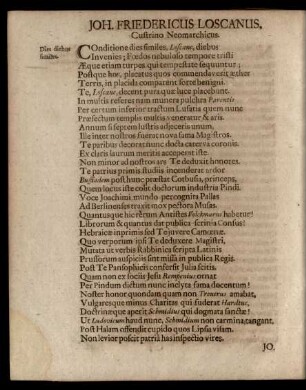 JOH. FRIEDERICUS LOSCANUS,
Custrino Neomarchicus.
Dies diebus
similes.
COnditione dies similes, Loscane, diebus
Invenies; Fœdos nebuloso tempore tristi
Æque etiam corpus qui tempestate sequuntur;
Postque hos, placatus quos commendaverit æther
Terris, in placida comparent sorte benigni.
Te, Loscane, decent pura quæ luce placebunt.
In multis referes tum munera pulchra Parentis
Per certum inferior tractum Lusatia quem nunc
Præfectum templis multis veneratur & aris.
Annum si septem lustris adjeceris unum,
Ille inter nostros fuerat nova fama Magistros.
Te paribus decorat nunc docta caterva coronis
Ex claris laurum meritis accepere iste.
Non minor ad nostros ars Te deduxit honores.
Te patrius primis studiis incenderat ardor
post hunc præstat Corbusia, princeps,
Quem locus iste colit doctorum industria Pindi.
Voce Joachimi mundo percognita Pallas
Ad Berlinenses traxit mox pectora Musas.
Quantusque hic rerum Antistes Volckmarus habetur!
Librorum & quantus dat publica scrinia Consus!
Hebraicæ inprimis sed Te juvere Camœnæ.
Quo verporum ipsi Te deduxere Magistri,
Mutata ut verbis Rabbinica scripta Latinis
Prusiorum auspiciis sint missa in publica Regis.
Post Te Pansophicis conferris Julia scitis.
Quam non ex sociis Jesu Remfenius ornat
Per Pindum dictum nunc inclyta fama docentum!
Noster honor quondam quam non Treuerus amabat,
Vulgares que mimus Charitas qui fuderat Hardtus,
Doctrinæque aperit Schmidius qui dogmata sanctæ!
Ut Ludovicum haud nunc, Schmidium non carmina tangant.
Post Halam offendit cupido quos Lipsa visam.
Non levior poscit patriâ has inspectio vires.
JO.